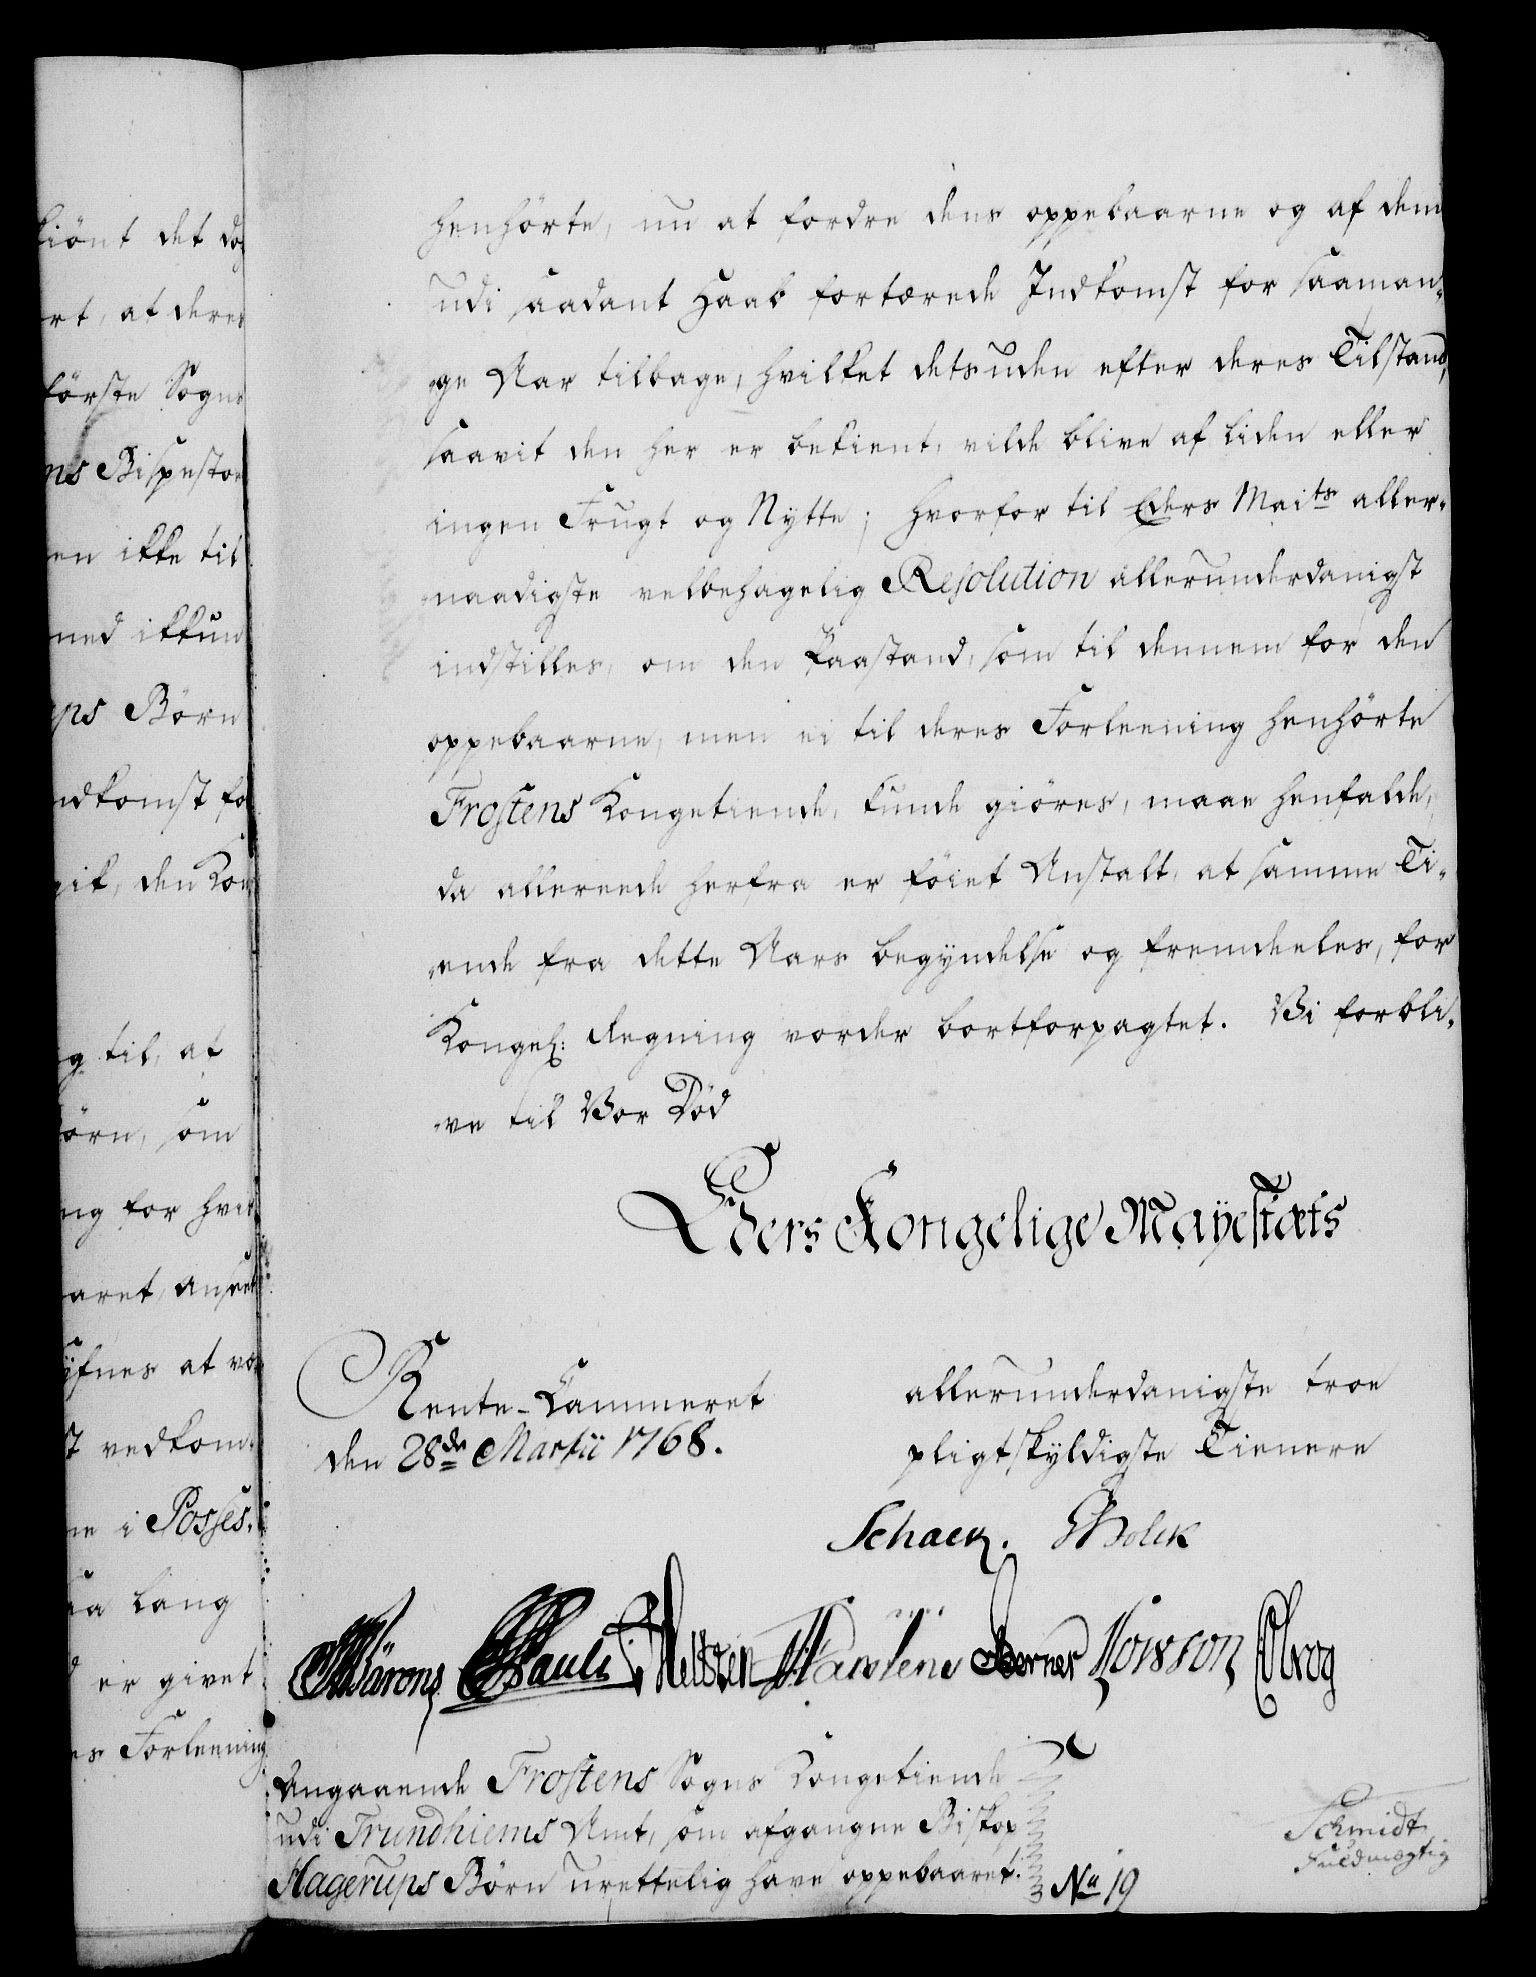 henhörte, nu at fordre dens oppebaarne og af dem
udi saadant Haab fortærede Indkomst for saaman-
ge Aar tilbage, hvilket detsuden efter deres Tilstand,
saavit den her er bekient, vilde blive af liden eller
ingen Frugt og Nytte; hvorfor til Eders Maits aller-
naadigste velbehagelig Resolution allerunderdanigst
indstilles, om den Paastand, som til dennem for den
oppebaarne, men ei til deres Forleening henhörte
Frostens Kongetiende, kunde giöres, maae henfalde,
da allereede herfra er föiet Anstalt, at samme Ti-
ende fra dette Aars begyndelse og fremdeeles, for
Kongel: Regning vorder bortforpagtet. Vi forbli-
ve til Vor Död
Eders Kongelige Mayestæts
Rente-Cammeret
den 28de Martii 1768.
allerunderdanigste troe
pligtskyldigste Tienere
Schack. Holck
Pauli Berner
Angaaende Frostens Sogns Kongetiende
udi Trundhiems Amt, som afgangne Biskop
Hagerups Börn urettelig have oppebaaret.
No 19
Schmidt
Fuldmægtig
kiönt det dog
rt, at deres
förste Sogns
ns Bispestoe
en ikke til
med ikkun
ps Börn
ndkomst fo
gik, den Kon
g til, at
börn, som
ng for hver
aret, anseet
yfnes at væ
st vedkom-
ne i Posses-
aa lang
er givet
es Forleening